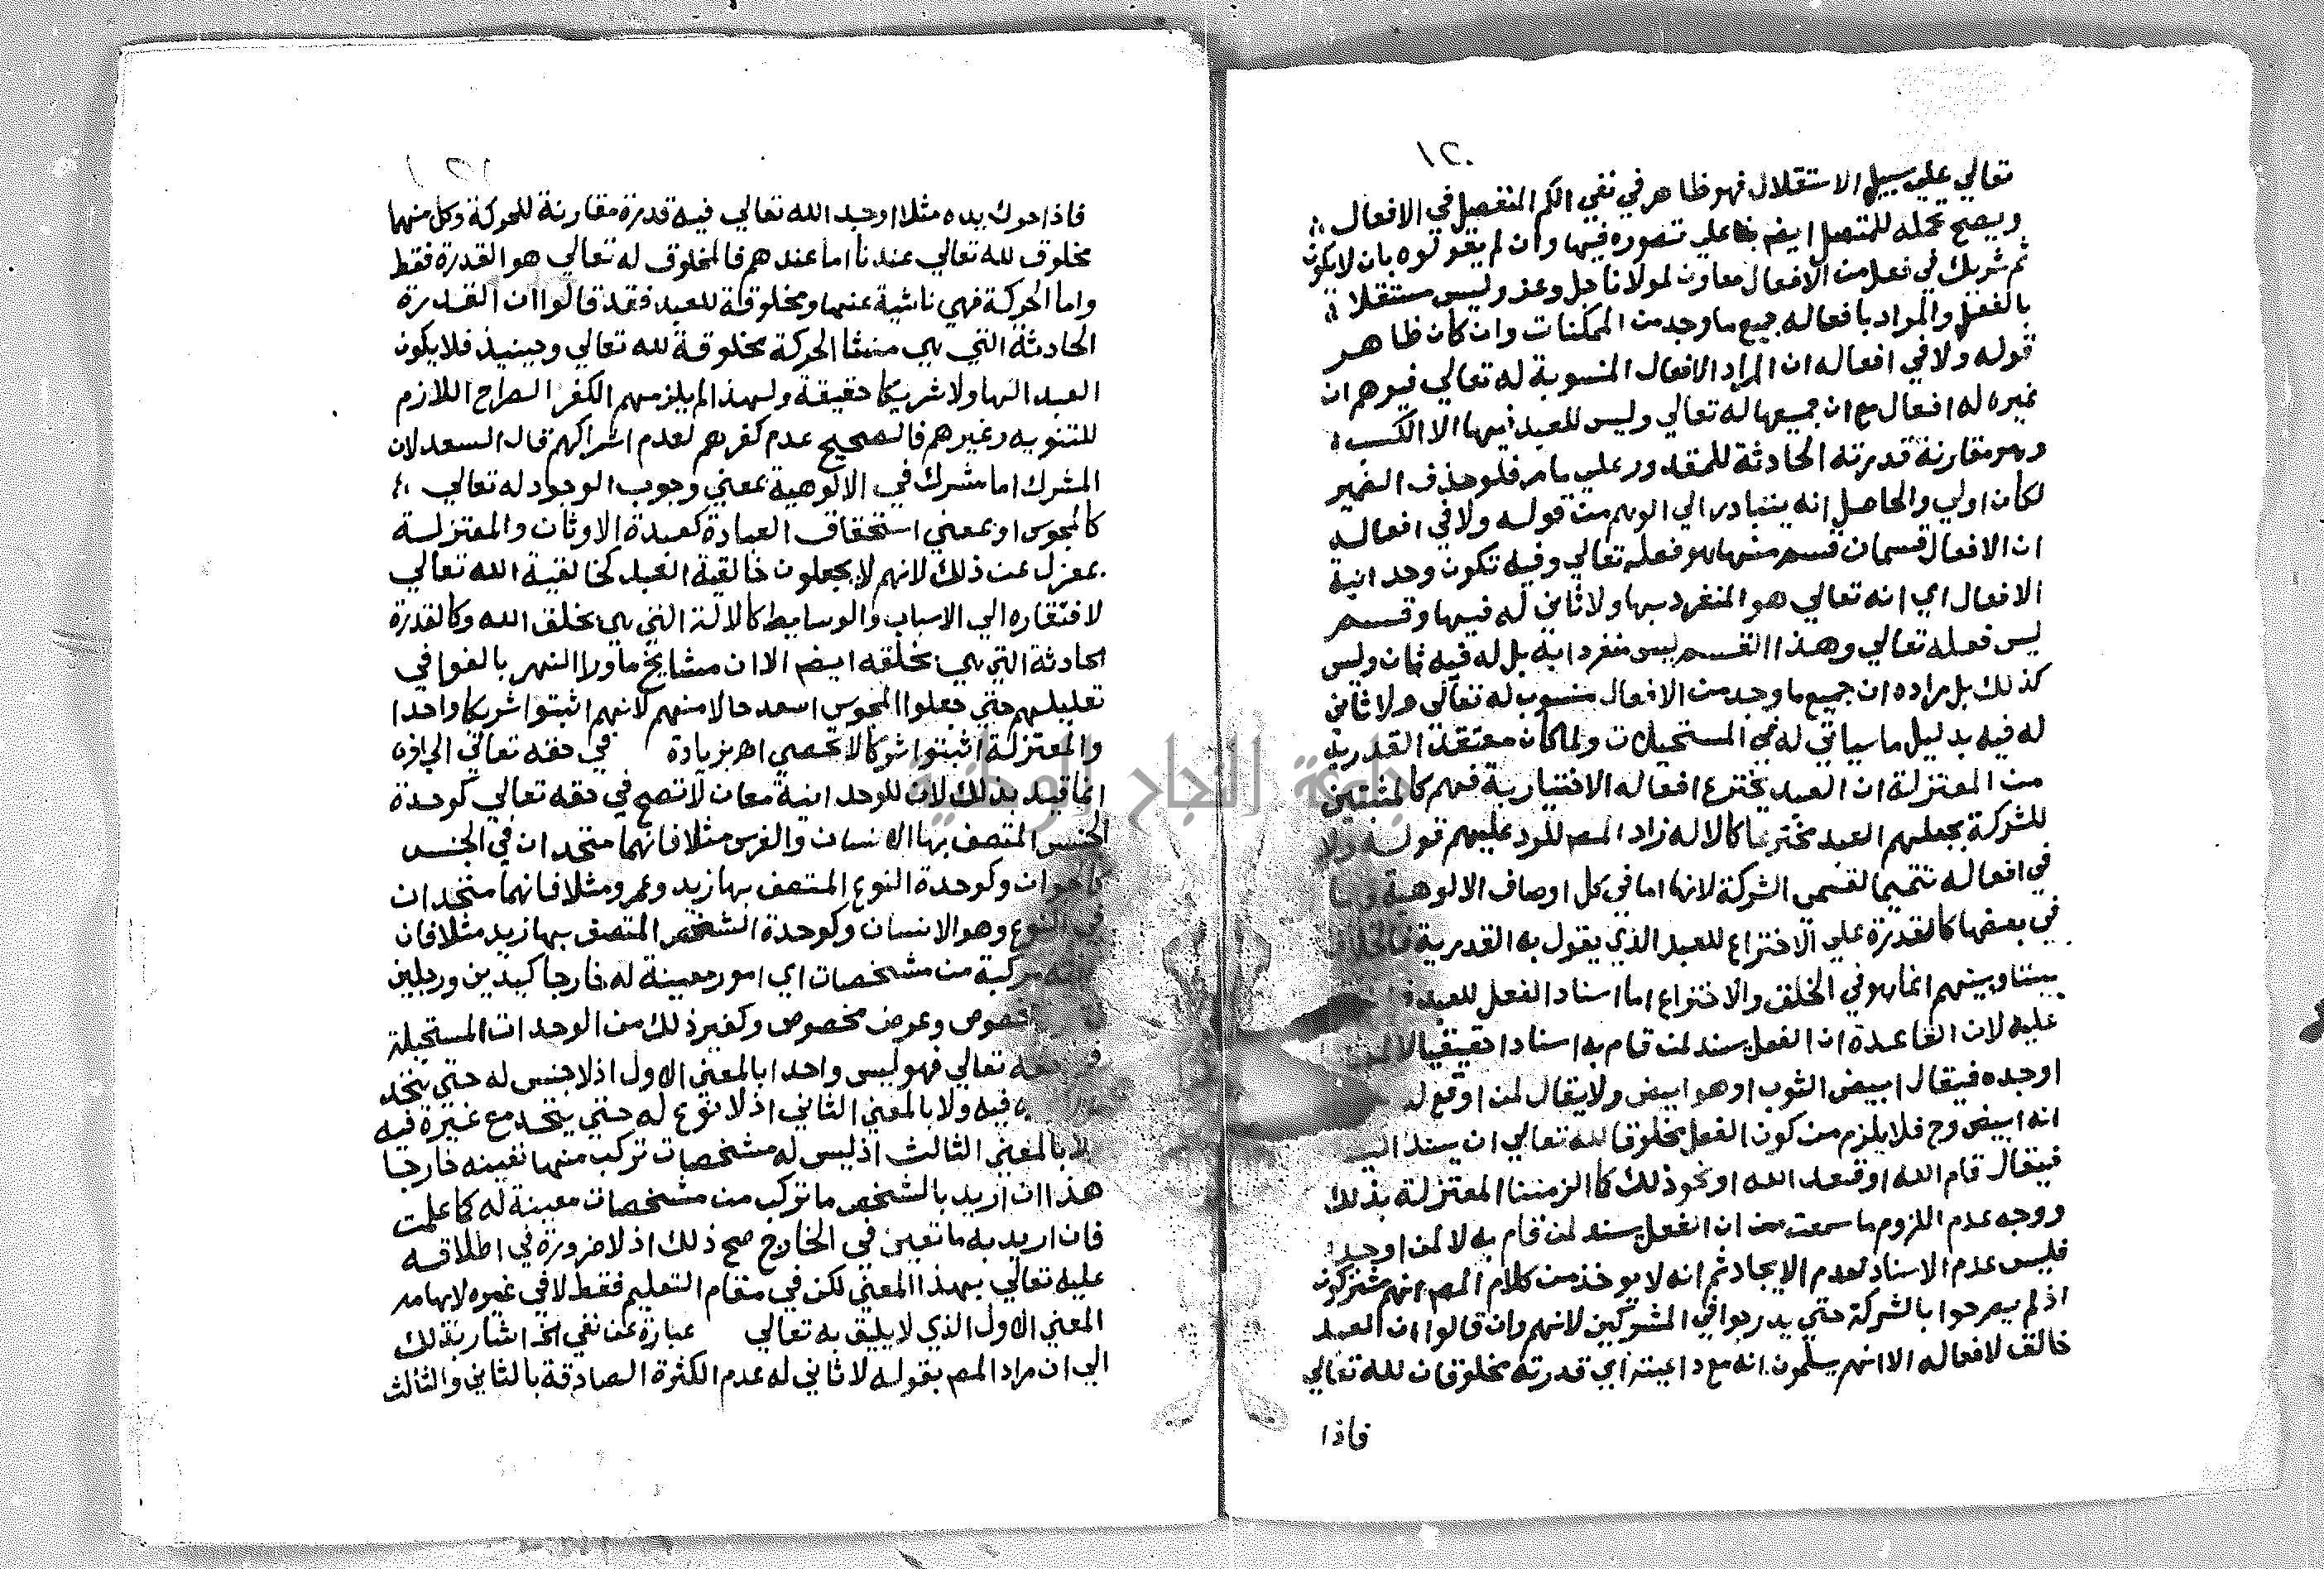 ١٢٠
تعالي علي سبيل الاستقلال فهو ظاهر في نفي الكم المنفصل في الافعال
ويصح حمله للمتصل ايضا بناء علي تصوره فيها وان لم يقولوه بان لا يكون
ثم شريك في فعل من الافعال معاون لمولانا جل وعز وليس مستقلا
بالفعل والمراد بافعاله جميع ما وجد من الممكنات وان كان ظاهر
قوله ولا في افعاله ان المراد الافعال المنسوبة له تعالي فيوهم ان
غيره له افعال مع ان جميعها له تعالي وليس للعبد فيها الا الكسب
وهو مقارنة قدرته الحادثة للمقدور علي ما مر فلو حذف الضمير
لكان اولي والحاصل انه يتبادر الي الوهم من قوله ولا في افعاله
ان الافعال قسمان قسم منها هو فعله تعالي وفيه تكون وحدانية
الافعال اي انه تعالي هو المنفرد بها ولا ثاني له فيها وقسم
ليس فعله تعالي وهذا القسم ليس منفردا به بل له فيه ثان وليس
كذلك بل مراده ان جميع ما وجد من الافعال منسوب له تعالي ولا ثاني
له فيه بدليل ما سياتي له في المستحيلات ولما كان معتقد القدرية
من المعتزلة ان العبد يخترع افعاله الاختيارية فهم كالمثبتين
للشركة بجعلهم العبد مخترعا كالاله زاد المصم للرد عليهم قوله ولا
في افعاله تتميما لقسمي الشركة لانها اما في كل اوصاف الالوهية واما
في بعضها كالقدرة علي الاختراع للعبد الذي يقول به القدرية فالخلاف
بيننا وبينهم انما هو في الخلق والاختراع اما اسناد الفعل للعبد
عليه لان القاعدة ان الفعل يسند لمن قام به اسنادا حقيقيا لا لمن
اوجده فيقال ابيض الثوب او هو ابيض ولا يقال لمن اوقع
انه ابيض وح فلا يلزم من كون الفعل مخلوقا لله تعالي ان يسند اليه
فيقال قام الله او قعد الله او نحو ذلك كما الزمننا المعتزلة بذلك
ووجه عدم اللزوم ما سمعت من ان الفعل يسند لمن قام به لا لمن اوجده
فليس عدم الاسناد لعدم الايجاد ثم انه لا يوخذ من كلام المصم انهم مشركون
اذ لم يصرحوا بالشركة حتي يدرجوا في المشركين لانهم وان قالوا ان العبد
خالق لافعاله الا انهم يسلمون انه مع داعيته اي قدرته مخلوقان لله تعالي
فاذا
١٢١
فاذا حرك يده مثلا اوجد الله تعالي فيه قدرة مقارنة للحركة وكل منهما
مخلوق لله تعالي عندنا اما عندهم فالمخلوق له تعالي هو القدرة فقط
واما الحركة فهي ناشية عنها ومخلوقة للعبد فقد قالوا ان القدرة
الحادثة التي هي منشا الحركة مخلوقة لله تعالي وحينيذ فلا يكون
العبد الها ولا شريكا حقيقة ولهذا لم يلزمهم الكفر الصراح اللازم
للثنويه وغيرهم فالصحيح عدم كفرهم لعدم اشراكهم قال السعد لان
المشرك اما مشرك في الالوهية بمعني وجوب الوجود له تعالي
كالمجوس او بمعني استحقاق العبادة كعبدة الاوثان والمعتزلة
بمعزل عن ذلك لانهم لا يجعلون خالقية العبد كخالقية الله تعالي
لافتقاره الي الاسباب والوسايط كالالة التي هي بخلق الله وكالقدرة
الحادثة التي هي بخلقه ايضم الا ان مشايخ ما ورا النهر بالغوا في
تعليلهم حتي جعلوا المجوس اسعد حالا منهم لانهم اثبتوا شريكا واحدا
والمعتزلة اثبتوا شركا لا تحصي اهـ بزيادة في حقه تعالي الي اخره
انما قيد بذلك لان للوحدانية معان لا تصح في حقه تعالي كوحدة
الجنس المتصف بها الانسان والفرس مثلا فانهما متحدان في الجنس
كالحيوان وكوحدة النوع المتصف بها زيد وعمرو مثلا فانهما متحدان
في النوع وهو الانسان وكوحدة الشخص المتصف بها زيد مثلا فان
مركبة من مشخصات اي امور معينة له خارجا كيدين ورجلين
مخصوص وعرض مخصوص وكغير ذلك من الوحدات المستحيلة
في حقه تعالي فهو ليس واحدا بالمعني الاول اذ لا جنس له حتي يتحد
فيه ولا بالمعني الثاني اذ لا نوع له حتي يتحد مع غيره فيه
ولا بالمعني الثالث اذ ليس له مشخصات تركب منها تعينه خارجا
هذا ان اريد بالشخص ما تركب من مشخصات معينة له كما علمت
فان اريد به ما تعين في الخارج صح ذلك اذ لا ضرورة في اطلاقه
عليه تعالي بهذا المعني لكن في مقام التعليم فقط لا في غيره لايهامه
المعني الاول الذي لا يليق به تعالي عبارة عن نفي الخ اشار بذلك
الي ان مراد المصم بقوله لا ثاني له عدم الكثرة الصادقة بالثاني والثالث
جامعة النجاح الوطنية